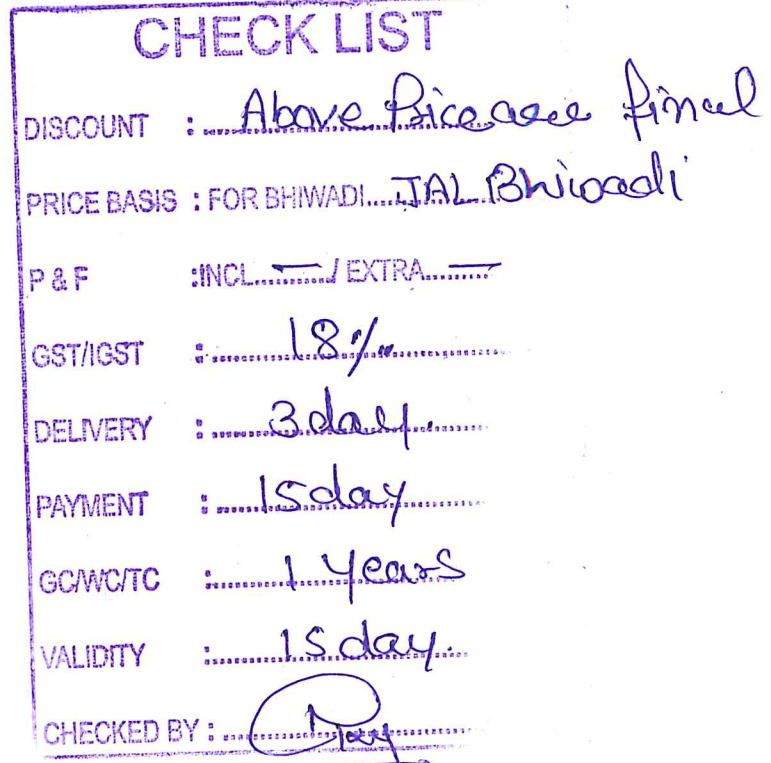 CHECK LIST
DISCOUNT : Above Price are final
PRICE BASIS : FOR BHIWADI..... JAL Bhiwadi
P & F :INCL......./ EXTRA.........
GST/IGST : 18%
DELIVERY : 3 day.
PAYMENT : 15 day
GC/WC/TC : 1 Years
VALIDITY : 15 day.
CHECKED BY :